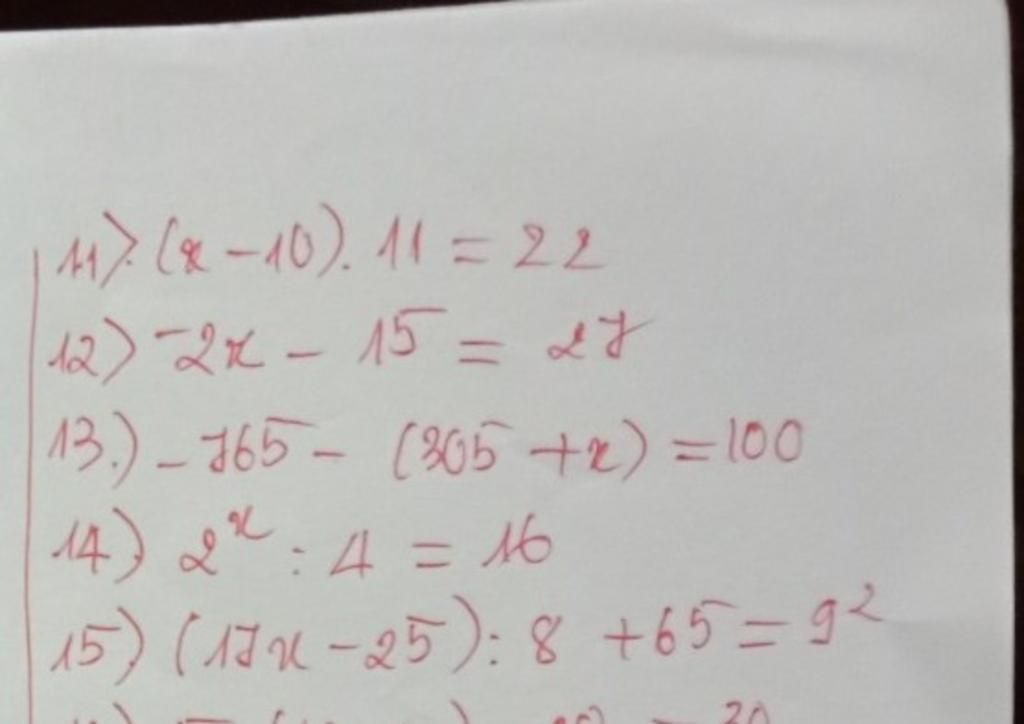 11) (x - 10). 11 = 22
12) -2x - 15 = 27
13.) - 765 - (305 + x) = 100
14) 2^x : 4 = 16
15) (17x - 25): 8 + 65 = 9^2